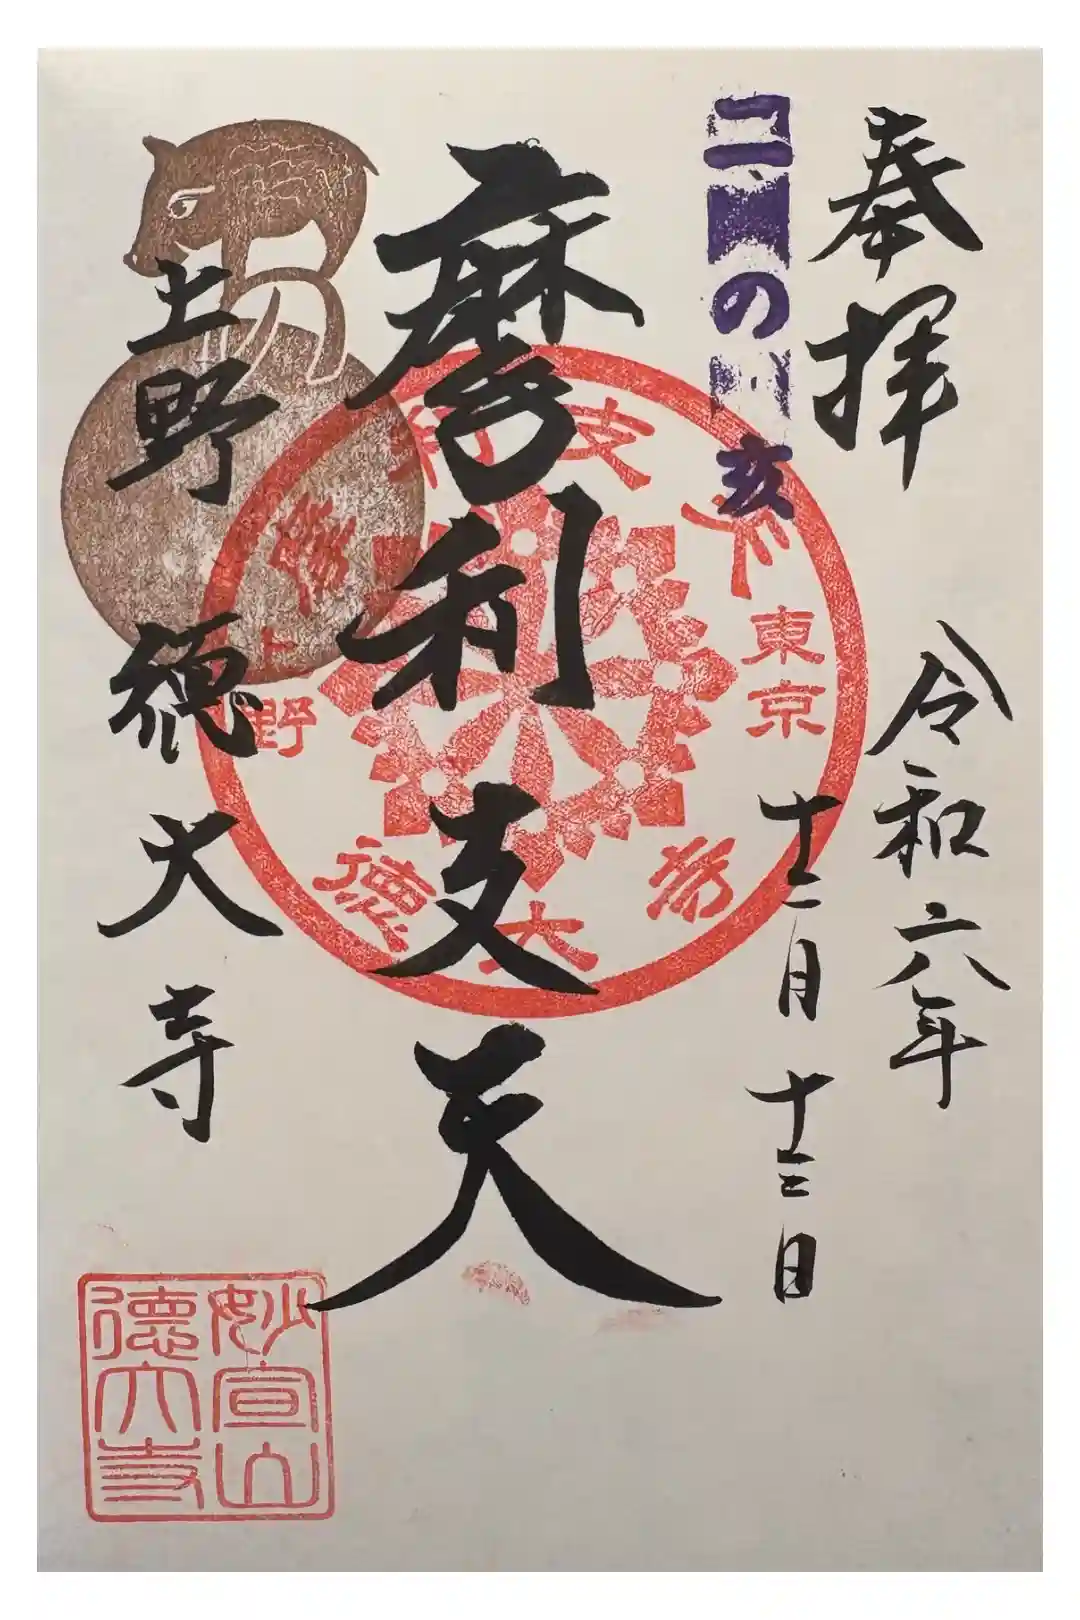 奉拝
令和六年
十二月十三日
二の亥
摩利支天
上野
徳大寺
摩利支天
東京
上野
徳大寺
妙宣山
徳大寺